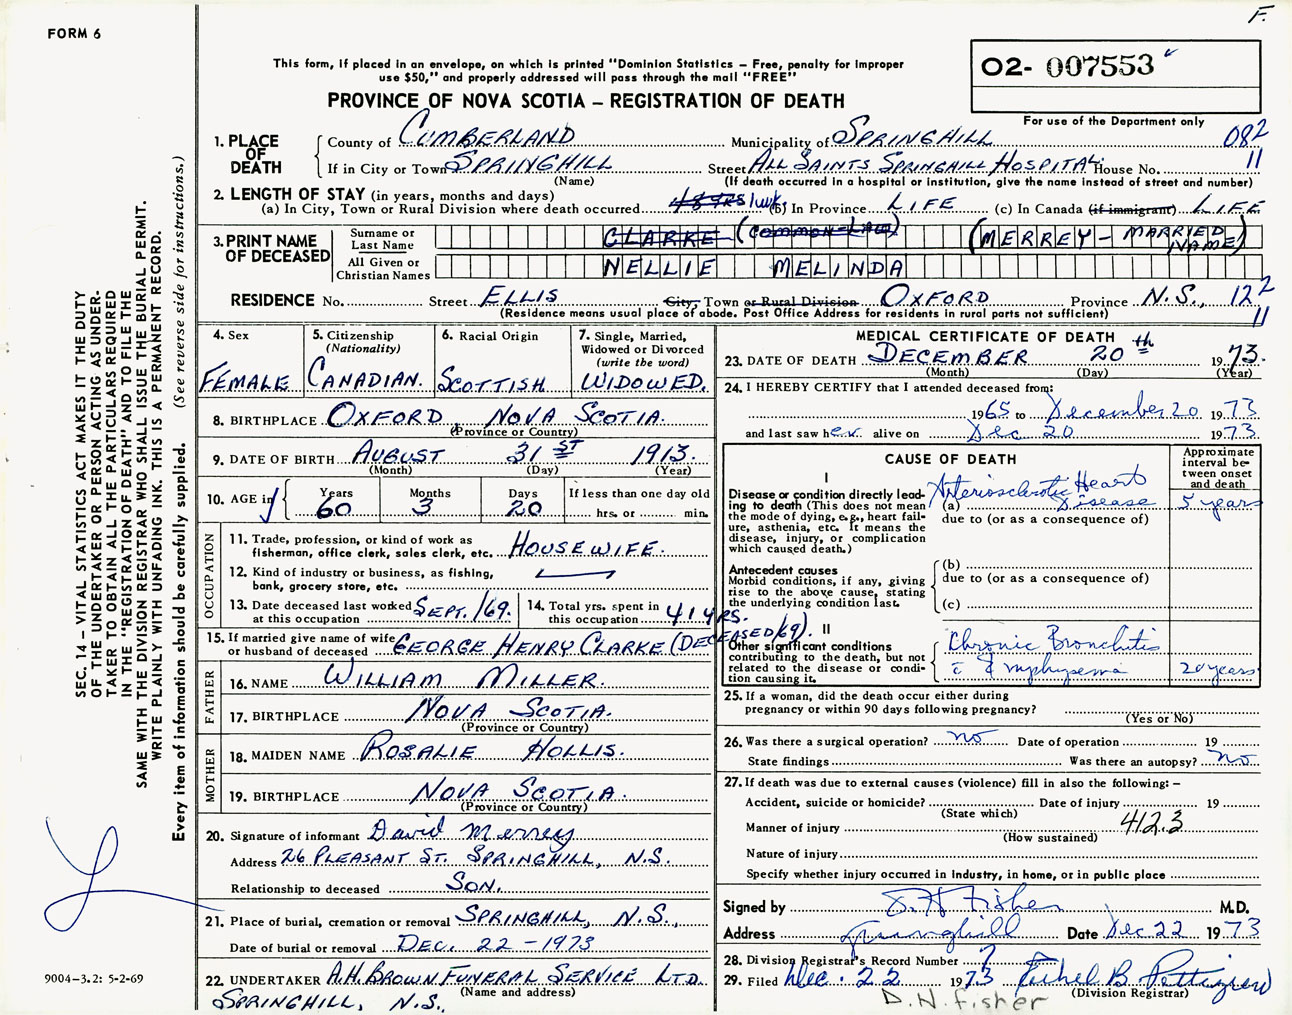 F.
FORM 6
This form, if placed in an envelope, on which is printed "Dominion Statistics – Free, penalty for improper
use $50," and properly addressed will pass through the mail "FREE"
O2- 007553
PROVINCE OF NOVA SCOTIA – REGISTRATION OF DEATH
For use of the Department only
1. PLACE OF DEATH County of CUMBERLAND Municipality of SPRINGHILL 082
If in City or Town SPRINGHILL Street ALL SAINTS SPRINGHILL HOSPITAL House No. 11
(Name) (If death occurred in a hospital or institution, give the name instead of street and number)
2. LENGTH OF STAY (in years, months and days)
(a) In City, Town or Rural Division where death occurred 48 YRS 1 wk. (b) In Province LIFE (c) In Canada (if immigrant) LIFE
3. PRINT NAME OF DECEASED
Surname or Last Name CLARKE (COMMON-LAW) (MERREY – MARRIED NAME)
All Given or Christian Names NELLIE MELINDA
RESIDENCE No. Street ELLIS City, Town or Rural Division OXFORD Province N.S., 122
(Residence means usual place of abode. Post Office Address for residents in rural parts not sufficient) 11
4. Sex FEMALE
5. Citizenship (Nationality) CANADIAN.
6. Racial Origin SCOTTISH
7. Single, Married, Widowed or Divorced (write the word) WIDOWED.
8. BIRTHPLACE OXFORD NOVA SCOTIA.
(Province or Country)
9. DATE OF BIRTH AUGUST 31ST 1913.
(Month) (Day) (Year)
10. AGE in Years 60 Months 3 Days 20 If less than one day old hrs. or min.
OCCUPATION
11. Trade, profession, or kind of work as fisherman, office clerk, sales clerk, etc. HOUSEWIFE.
12. Kind of industry or business, as fishing, bank, grocery store, etc.
13. Date deceased last worked at this occupation SEPT./69.
14. Total yrs. spent in this occupation 41 YRS.
15. If married give name of wife or husband of deceased GEORGE HENRY CLARKE (DECEASED/69).
FATHER
16. NAME WILLIAM MILLER.
17. BIRTHPLACE NOVA SCOTIA.
(Province or Country)
MOTHER
18. MAIDEN NAME ROSALIE HOLLIS.
19. BIRTHPLACE NOVA SCOTIA.
(Province or Country)
20. Signature of informant David Merrey
Address 26 PLEASANT ST. SPRINGHILL, N.S.
Relationship to deceased SON.
21. Place of burial, cremation or removal SPRINGHILL, N.S.,
Date of burial or removal DEC. 22 – 1973
22. UNDERTAKER A.H. BROWN FUNERAL SERVICE LTD.
(Name and address)
SPRINGHILL, N.S.
MEDICAL CERTIFICATE OF DEATH
23. DATE OF DEATH DECEMBER 20th 1973.
(Month) (Day) (Year)
24. I HEREBY CERTIFY that I attended deceased from:
1965 to December 20 1973
and last saw her alive on Dec 20 1973
CAUSE OF DEATH
Approximate interval between onset and death
I
Disease or condition directly leading to death (This does not mean the mode of dying, e.g., heart failure, asthenia, etc. It means the disease, injury, or complication which caused death.)
(a) Arteriosclerotic Heart Disease 5 years
due to (or as a consequence of)
Antecedent causes
Morbid conditions, if any, giving rise to the above cause, stating the underlying condition last.
(b)
due to (or as a consequence of)
(c)
II
Other significant conditions contributing to the death, but not related to the disease or condition causing it.
Chronic Bronchitis
c̄ Emphysema 20 years
25. If a woman, did the death occur either during pregnancy or within 90 days following pregnancy?
(Yes or No)
26. Was there a surgical operation? no Date of operation 19
State findings Was there an autopsy? no
27. If death was due to external causes (violence) fill in also the following: –
Accident, suicide or homicide? Date of injury 19
(State which)
Manner of injury 412.3
(How sustained)
Nature of injury
Specify whether injury occurred in industry, in home, or in public place
Signed by D H Fisher M.D.
Address Springhill Date Dec 22 1973
28. Division Registrar's Record Number 7
29. Filed Dec. 22 1973 Ethel B. Pettigrew
(Division Registrar)
D.H. Fisher
SEC. 14 – VITAL STATISTICS ACT MAKES IT THE DUTY
OF THE UNDERTAKER OR PERSON ACTING AS UNDER-
TAKER TO OBTAIN ALL THE PARTICULARS REQUIRED
IN THE "REGISTRATION OF DEATH" AND TO FILE THE
SAME WITH THE DIVISION REGISTRAR WHO SHALL ISSUE THE BURIAL PERMIT.
WRITE PLAINLY WITH UNFADING INK. THIS IS A PERMANENT RECORD.
Every item of information should be carefully supplied. (See reverse side for instructions.)
9004–3.2: 5-2-69